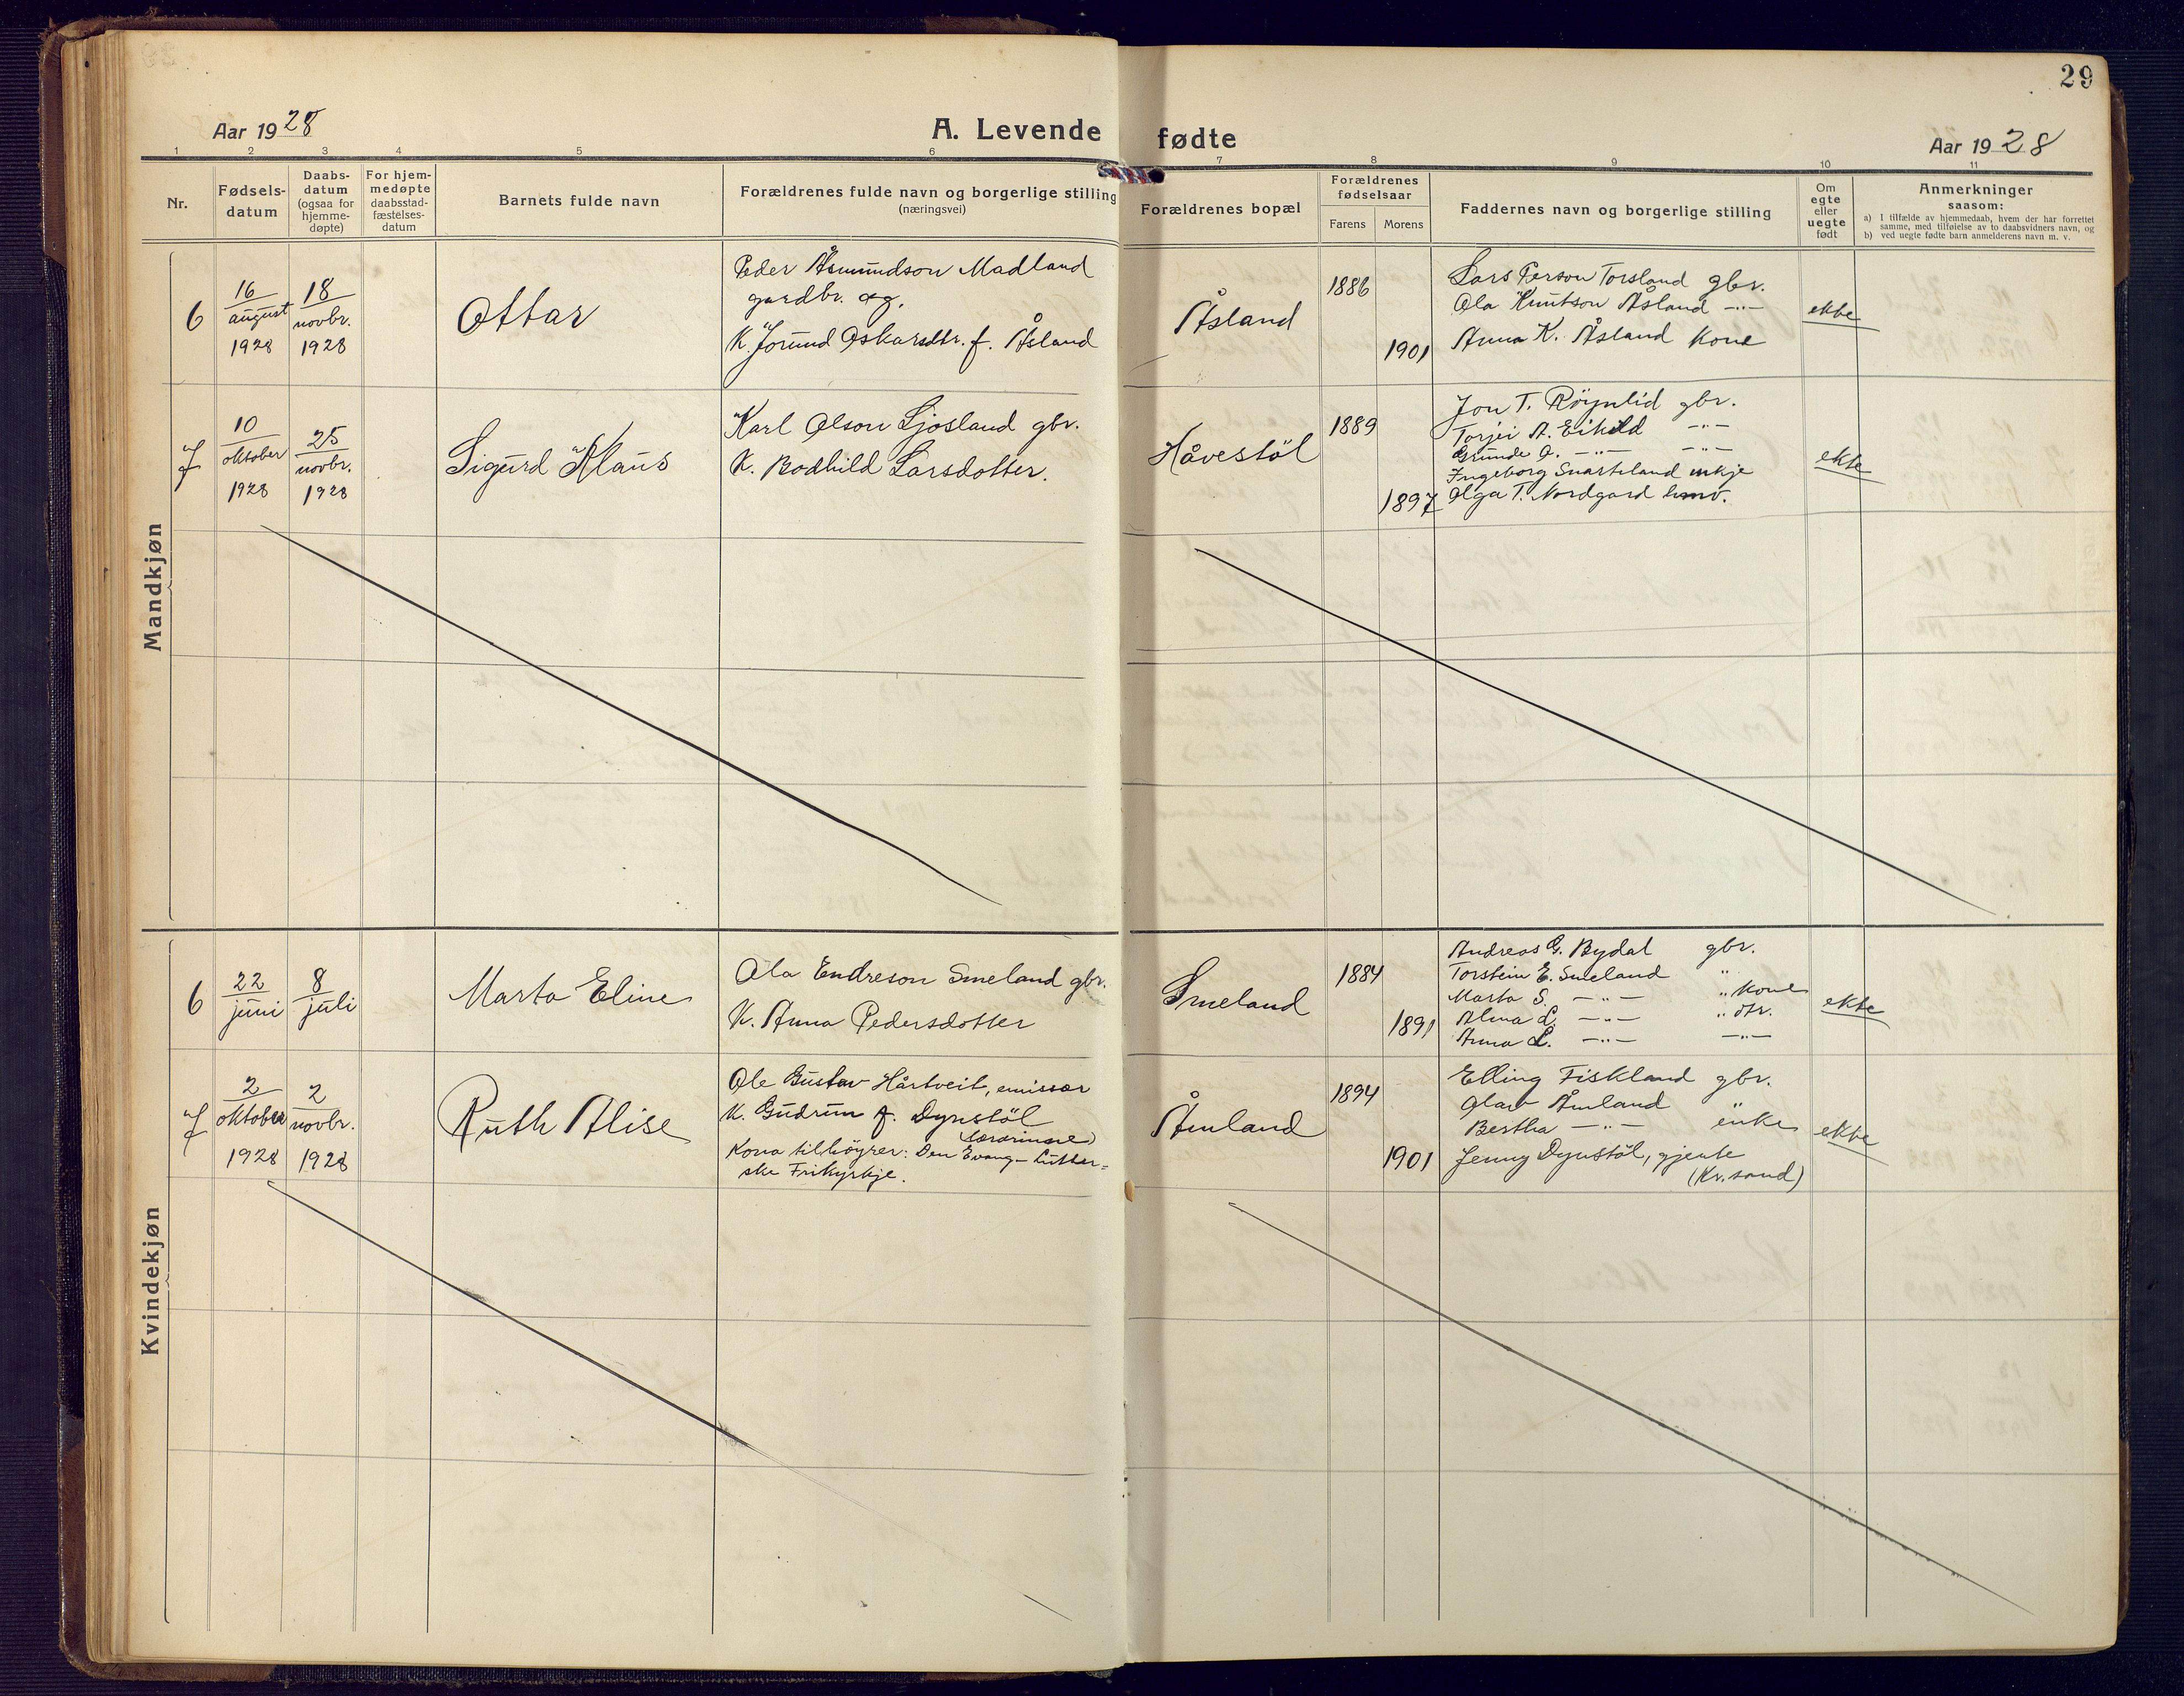 29
Aar 1928
A. Levende fødte
Aar 1928
1 2 3 4 5 6 7 8 9 10 11
Nr.
Fødsels-
datum
Daabs-
datum
(ogsaa for
hjemme-
døpte)
For hjem-
medøpte
daabsstad-
fæstelses-
datum
Barnets fulde navn
Forældrenes fulde navn og borgerlige stilling
(næringsvei)
Forældrenes bopæl
Forældrenes
fødselsaar
Farens Morens
Faddernes navn og borgerlige stilling
Om
egte
eller
uegte
født
Anmerkninger
saasom:
a) I tilfælde av hjemmedaab, hvem der har forrettet
samme, med tilføielse av to daabsvidners navn, og
b) ved uegte fødte barn anmelderens navn m. v.
Mandkjøn
6
16
august
1928
18
novbr.
1928
Ottar
Peder Åsmundson Madland
gardbr. og.
K. Jorund Oskarsdtr. f. Åsland
Åsland
1886
1901
Lars Person Torsland gbr.
Ola Knutson Åsland -"-
Anna K. Åsland kone
ekte
7
10
oktober
1928
25
novbr.
1928
Sigurd Klaus
Karl Olson Ljosland gbr.
K. Bodhild Larsdotter.
Håvestöl
1889
1897
Jon T. Röynlid gbr.
Torjei A. Eikild -"-
Grunde O. -"- -"-
Ingeborg Suarteland enkje
Olga T. Nordgard
ekte
Kvindekjøn
6
22
juni
8
juli
Marta Eline
Ola Endreson Smeland gbr.
K. Anna Pedersdotter
Smeland
1884
1891
Andreas G. Bydal gbr.
Torstein E. Smeland "
Marta S. -"- " kone
Alma L. -"- " dtr.
Anna L. -"- -"-
ekte
7
2
oktober
1928
2
novbr.
1928
Ruth Alise
Ole Gustav Hårtveit, emissær
K. Gudrun f. Dynstöl
(lærarinne)
Kona tilhöyrer: Den Evang-Luther-
ske Frikyrkje.
Åmland
1894
1901
Elling Fiskland gbr.
Olav Åmland
Bertha -"- enke
Jenny Dynstöl, gjente
(Kr.sand)
ekte